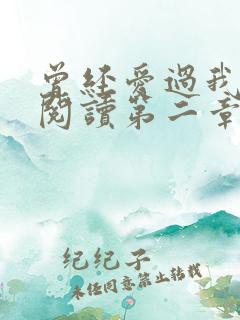 曾經愛過我
閱讀第二章
紀紀子
未經同意禁止轉載